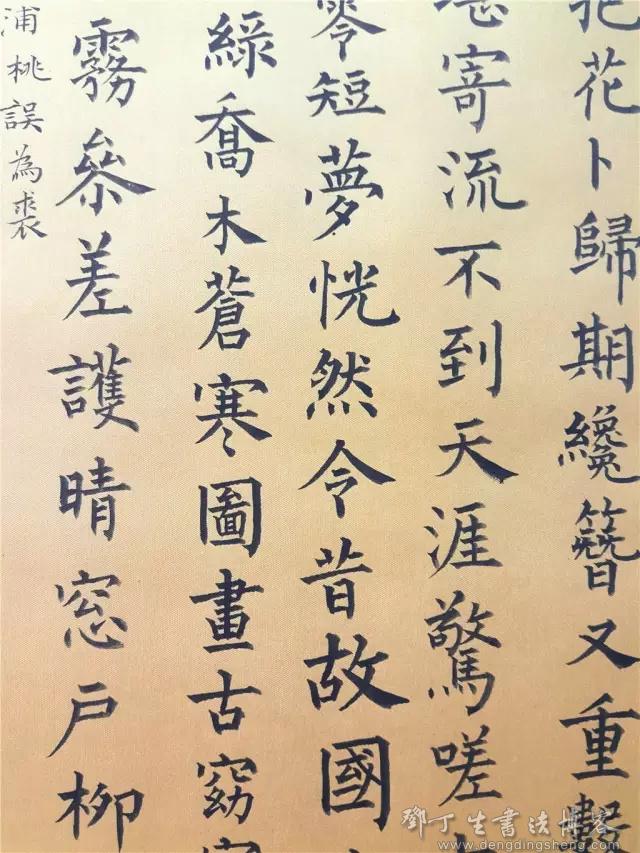 花卜歸期纔簪又重
寄流不到天涯驚嗟
零短夢恍然今昔故國
綠喬木蒼寒圖畫古窈
霧參差護晴窓戶柳
浦桃誤為裘
鄧丁生書法博客
www.dengdingsheng.com